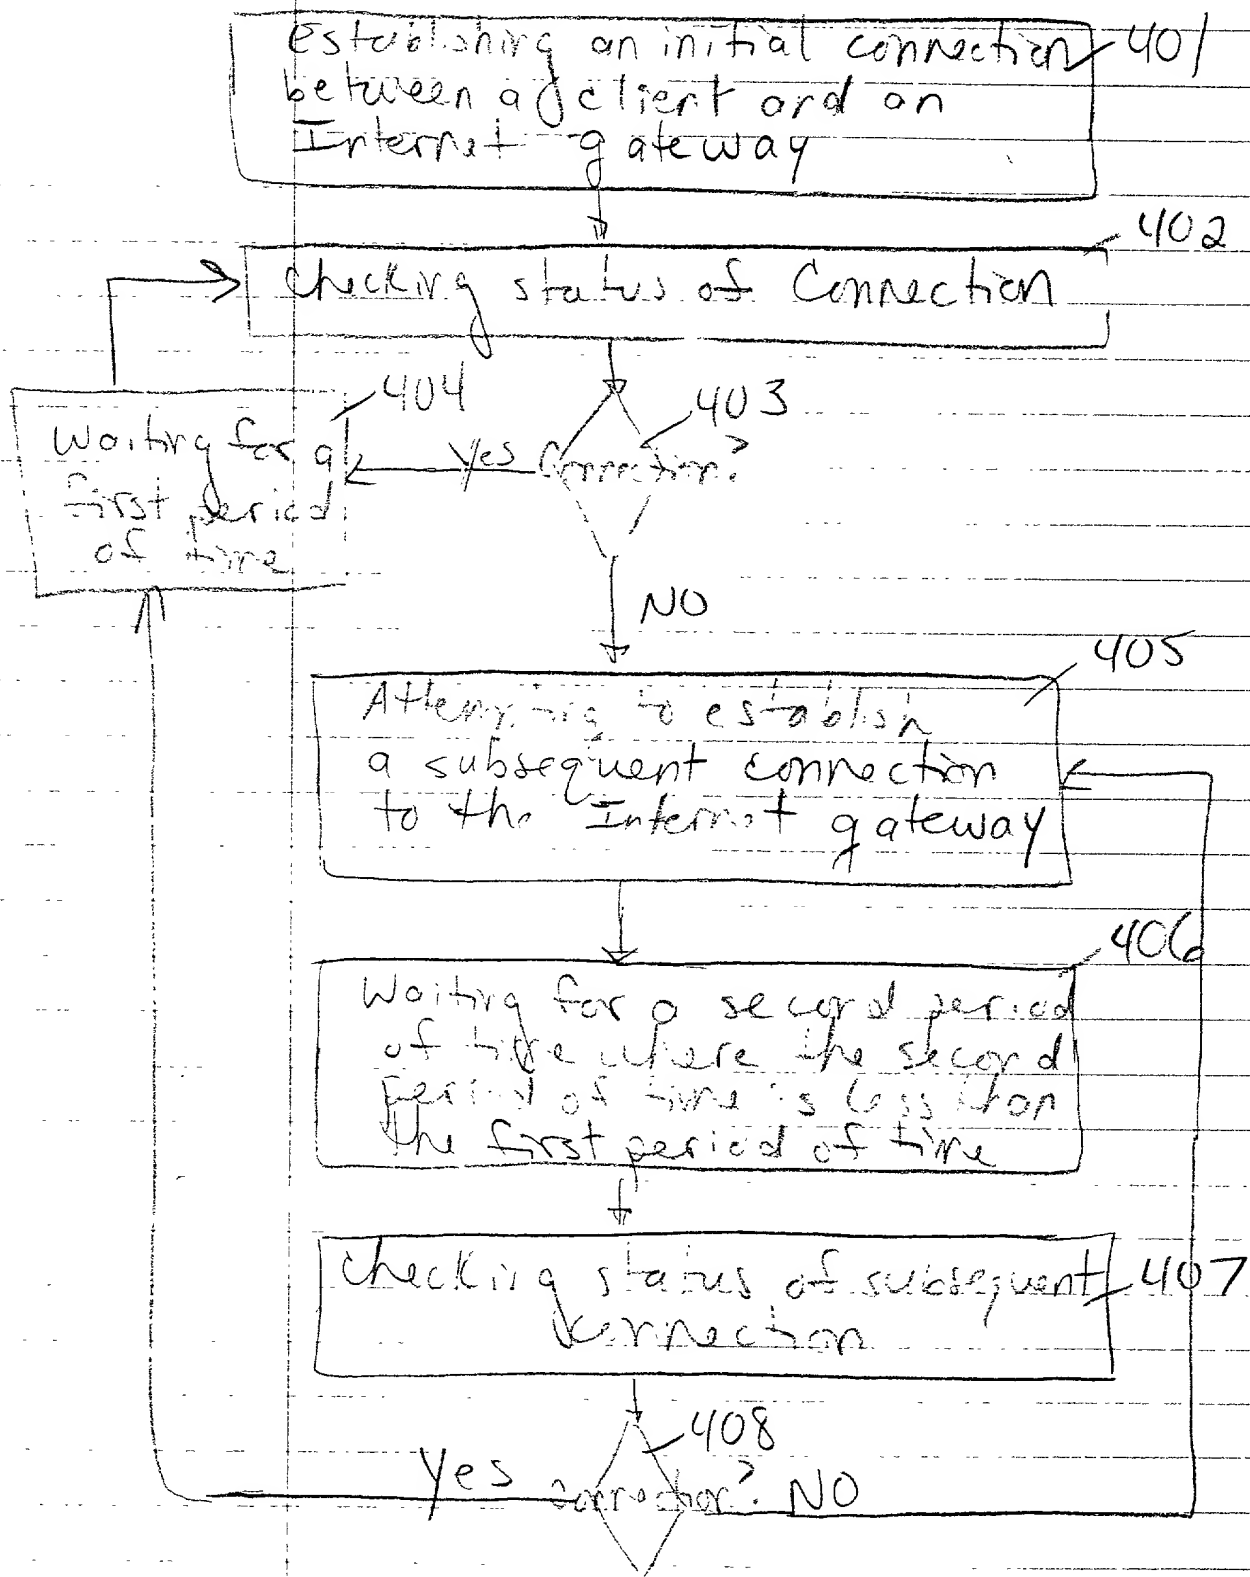 Establishing an initial connection 401
between a client and an
Internet gateway
402
Checking status of Connection
404
403
Waiting for a
first period
of time
Yes Connection?
NO
405
Attempting to establish
a subsequent connection
to the Internet gateway
406
Waiting for a second period
of time where the second
period of time is less than
the first period of time
Checking status of subsequent 407
connection
408
Yes connection? NO